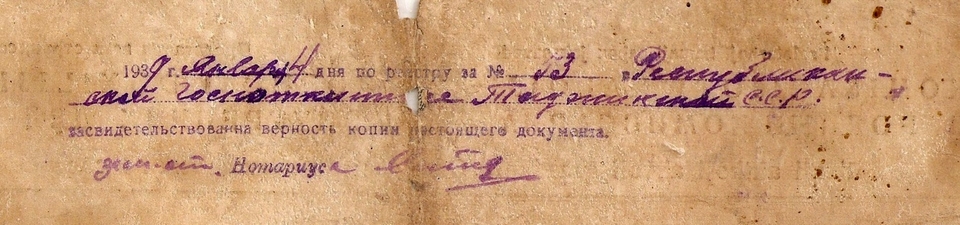 1939 г. Января 4 дня по реестру за № 73 в Республикан-
ской Госнотконторе Таджикской С.С.Р.
засвидетельствована верность копии настоящего документа.
Нотариуса